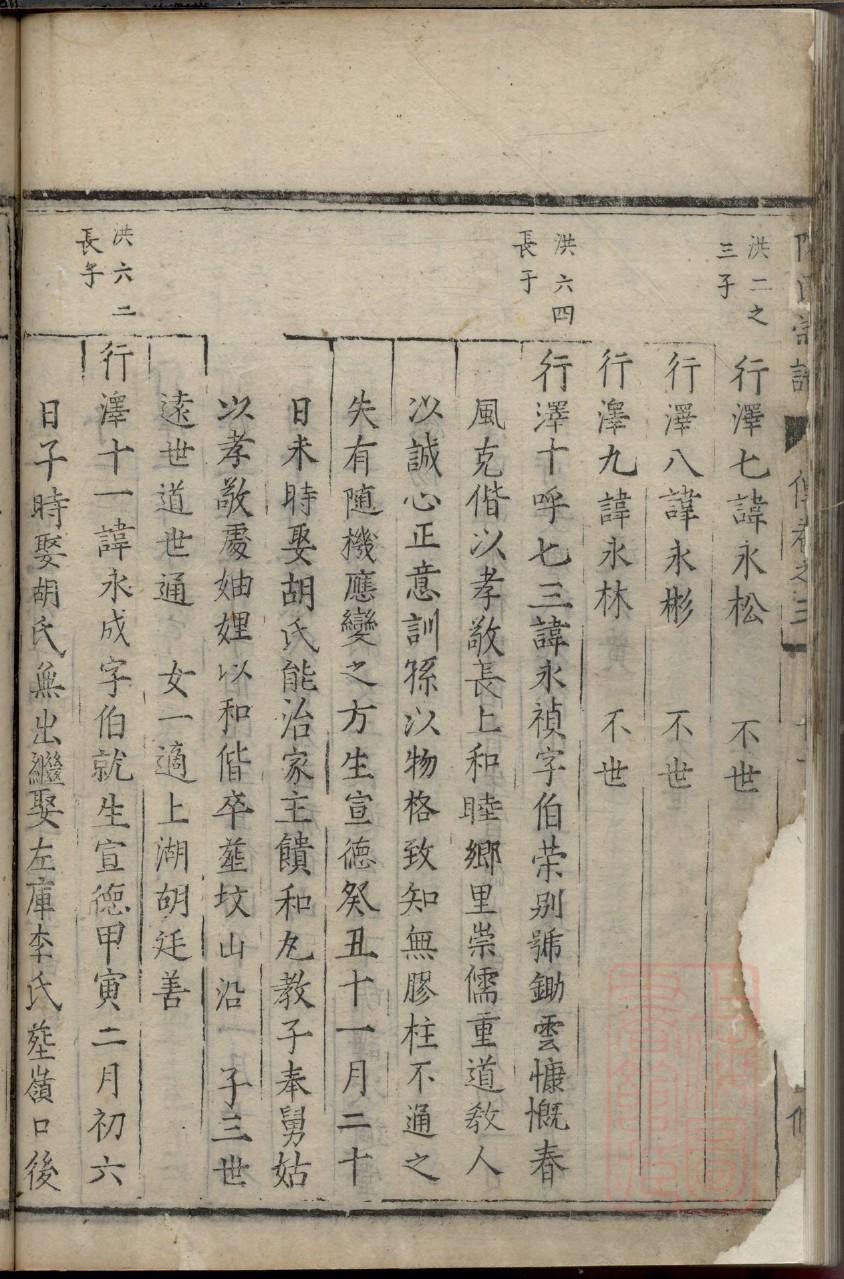 氏宗譜 卷之三
洪二之
三子
行澤七諱永松 不世
行澤八諱永彬 不世
行澤九諱永林 不世
洪六四
長子
行澤十呼七三諱永禎字伯荣别號鋤雲慷慨春
風克偕以孝敬長上和睦鄉里崇儒重道教人
以誠心正意訓孫以物格致知無膠柱不通之
失有随機應變之方生宣德癸丑十一月二十
日未時娶胡氏能治家主饋和丸教子奉舅姑
以孝敬處妯娌以和偕卒塟坟山沿 子三世
遠世道世通 女一適上湖胡廷善
洪六二
長子
行澤十一諱永成字伯就生宣德甲寅二月初六
日子時娶胡氏無出繼娶左庫李氏塟嶺口後